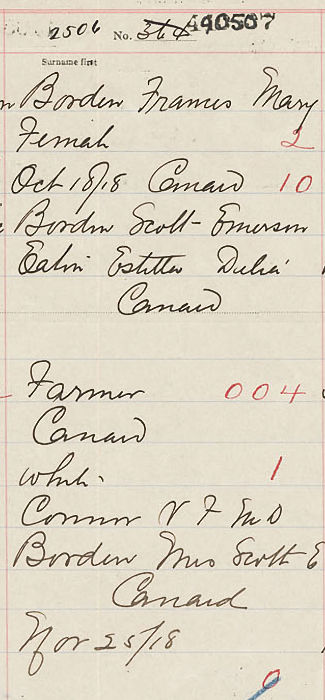 2506 No. 364 A40507
Surname first
Borden Frances Mary
Female 2
Oct 18/18 Canard 10
Borden Scott Emerson
Eaton Estella Delia
Canard
Farmer 004
Canard
White 1
Connor V F MD
Borden Mrs Scott E
Canard
Nov 25/18